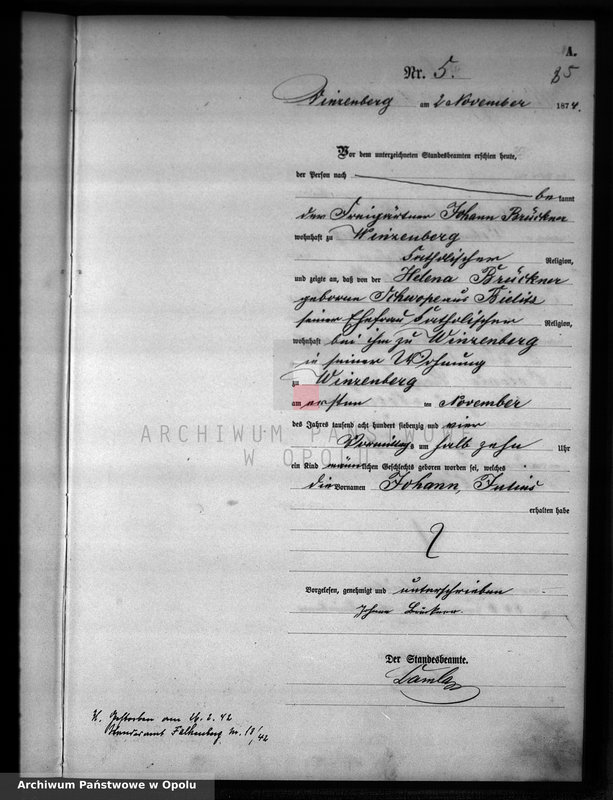 A.
Nr. 5.
85
Winzenberg am 2 November 1874.
Vor dem unterzeichneten Standesbeamten erschien heute,
der Person nach
bekannt
der Freigärtner Johann Brückner
wohnhaft zu Winzenberg
katholischer Religion,
und zeigte an, daß von der Helena Brückner
geborene Schwope aus Bielitz
seiner Ehefrau katholischer Religion,
wohnhaft bei ihm zu Winzenberg
in seiner Wohnung
zu Winzenberg
am ersten ten November
des Jahres tausend acht hundert siebenzig und vier
Vormittags um halb zehn Uhr
ein Kind männlichen Geschlechts geboren worden sei, welches
die Vornamen Johann, Julius
erhalten habe
Vorgelesen, genehmigt und unterschrieben
Johann Brückner
Der Standesbeamte.
Gestorben am 26. 2. 42
Standesamt Falkenberg Nr. 18/42
ARCHIWUM PAŃSTWOWE
W OPOLU
Archiwum Państwowe w Opolu